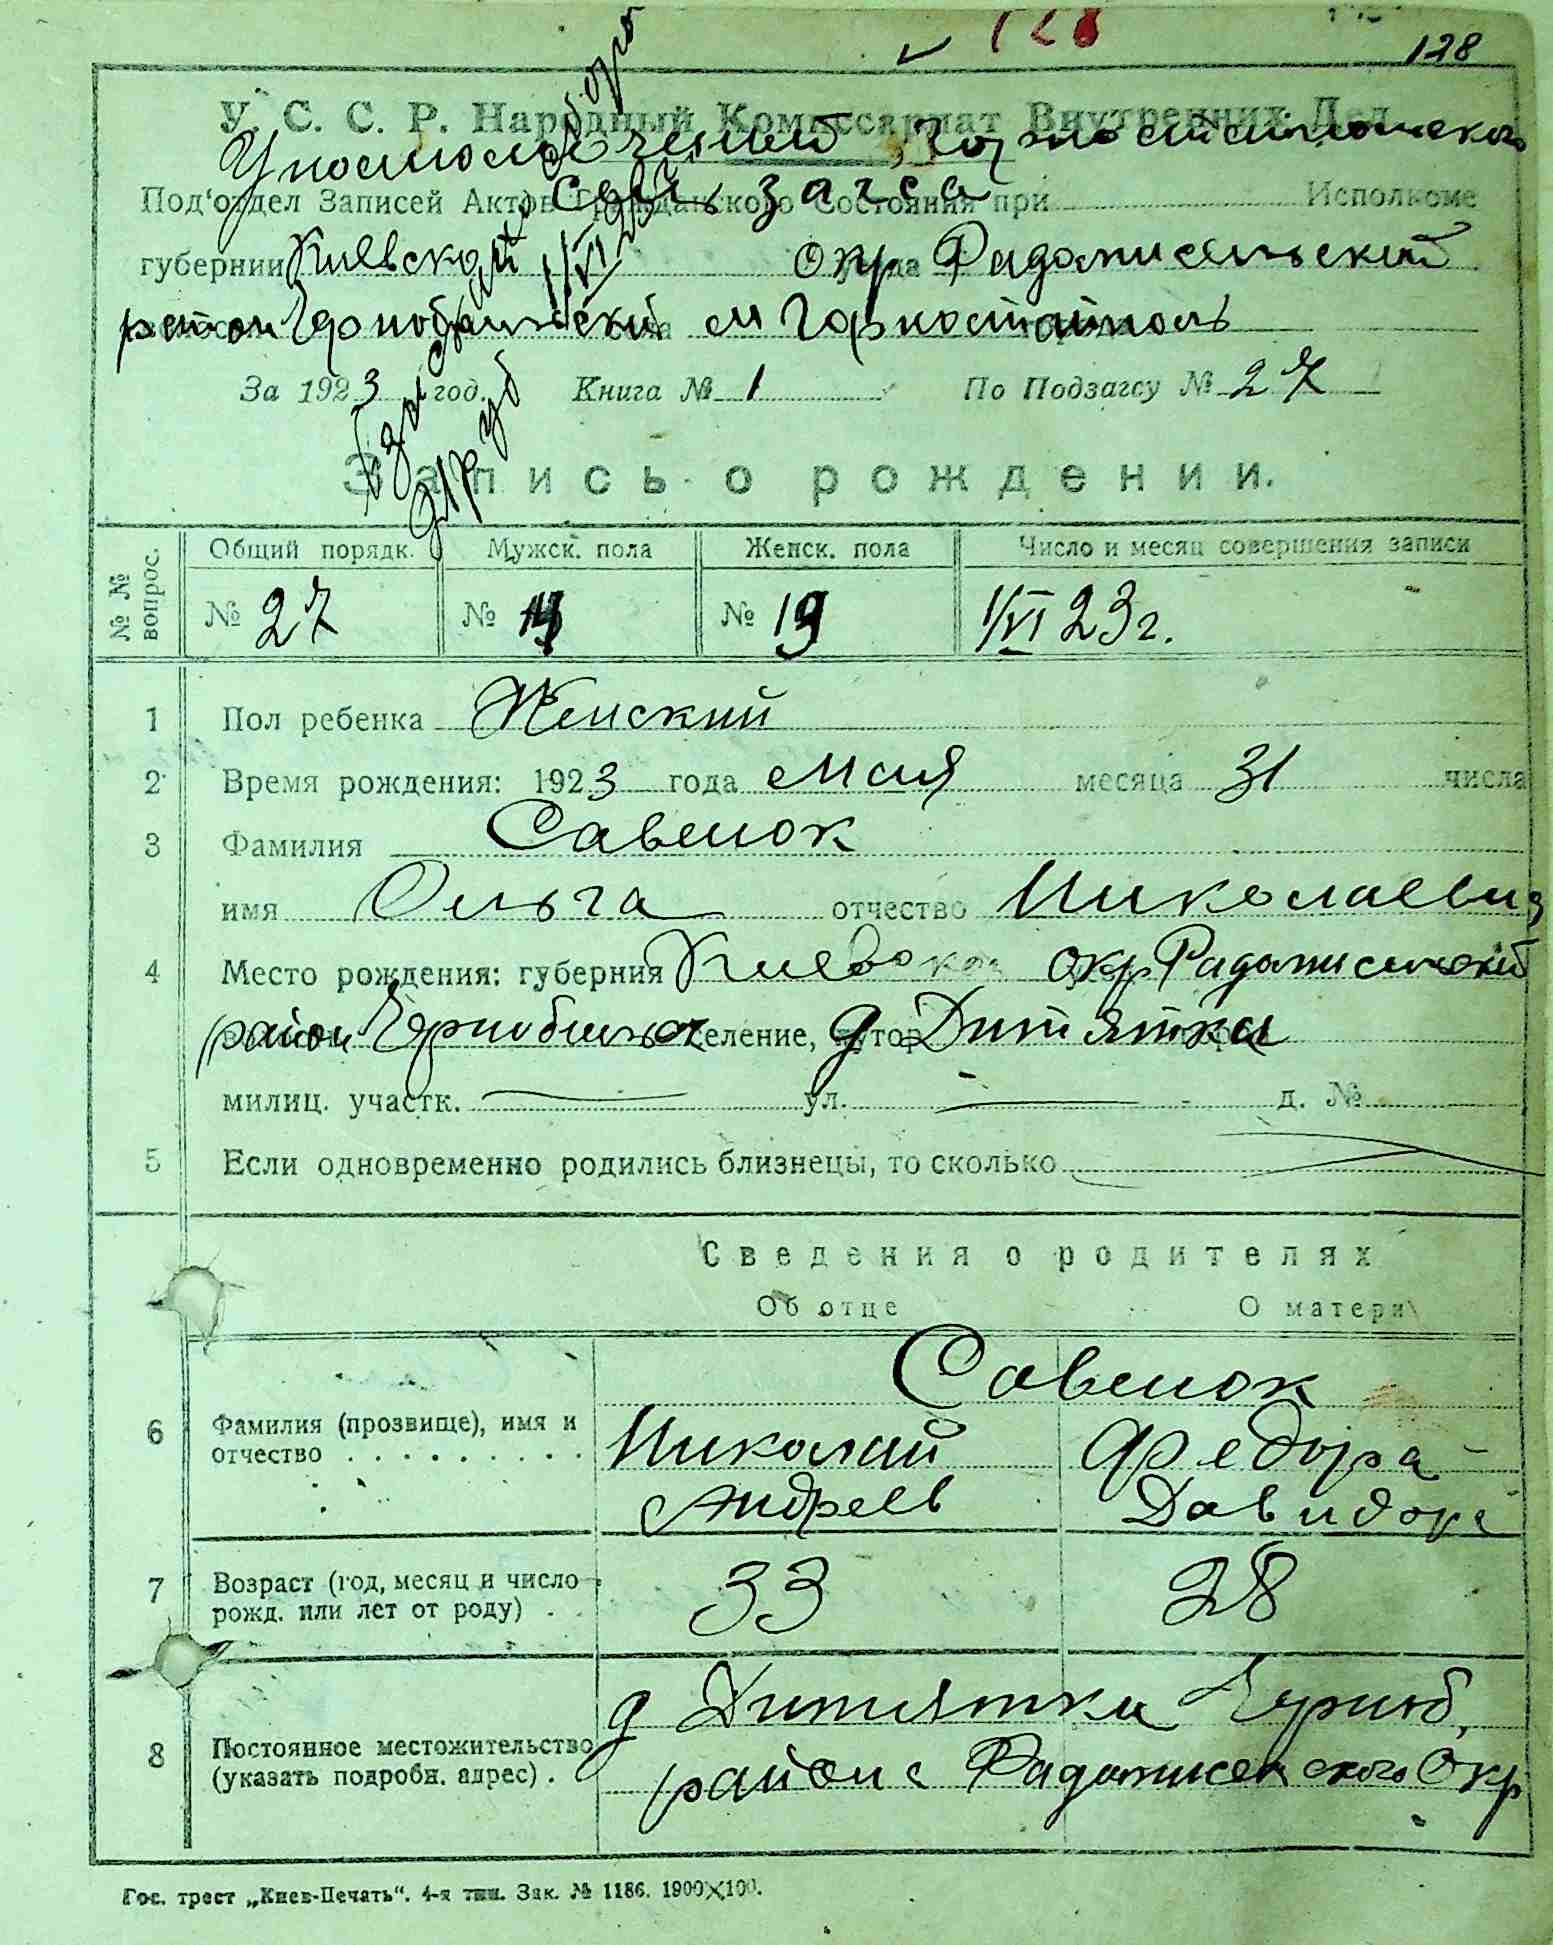 128
128
У. С. С. Р. Народный Комиссариат Внутренних Дел
Под'отдел Записей Актов Гражданского Состояния при сель загса Исполкоме
губернии Киевской окр Радомисельский
район Чорнобыльский м Горностайполь
За 1923 год. Книга № 1 По Подзагсу № 27
Запись о рождении.
№ № вопрос. Общий порядк. Мужск. пола Женск. пола Число и месяц совершения записи
№ 27 № № 19 1/VI 23 г.
1 Пол ребенка Женский
2 Время рождения: 1923 года Мая месяца 31 числа
3 Фамилия Савенок
имя Ольга отчество Николаевна
4 Место рождения: губерния Киевская окр Радомисельский
район Чернобыльск селение, хутор д Дитятки
милиц. участк. — ул. — д. №
5 Если одновременно родились близнецы, то сколько
Сведения о родителях
Об отце О матери
Савенок
6 Фамилия (прозвище), имя и отчество Николай Андреев Федора Давидова
7 Возраст (год, месяц и число рожд. или лет от роду) 33 28
8 Постоянное местожительство (указать подробн. адрес) д Дитятки Черноб.
района Радомисельского Окр
Гос. трест „Киев-Печать“. 4-я тип. Зак. № 1186. 1900×100.